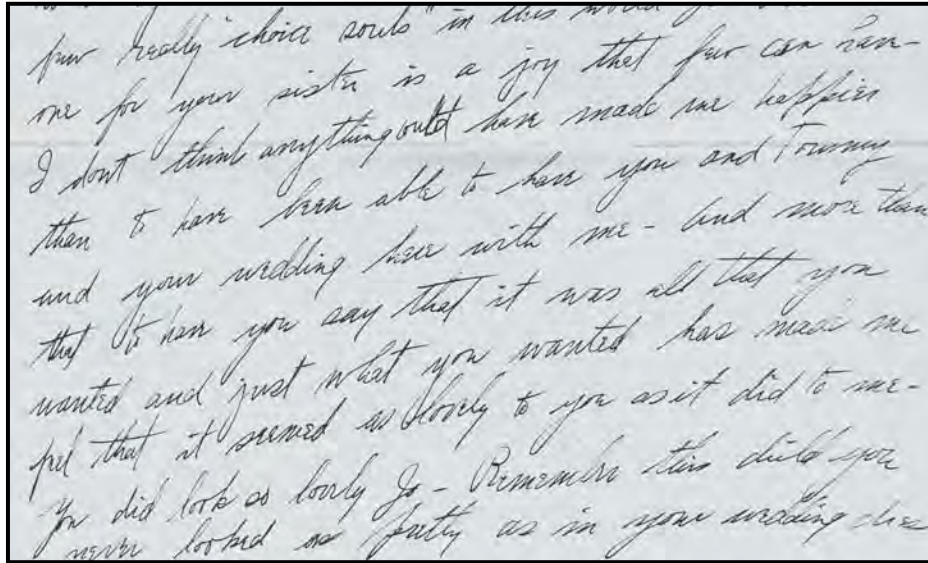 few really "choice souls" in this world
one for your sister is a joy that few can have -
I dont think anything could have made me happier
than to have been able to have you and Tommy
and your wedding here with me - and more than
that to have you say that it was all that you
wanted and just what you wanted has made me
feel that it seemed as lovely to you as it did to me -
you did look so lovely Jo - Remember this child you
never looked as pretty as in your wedding dres